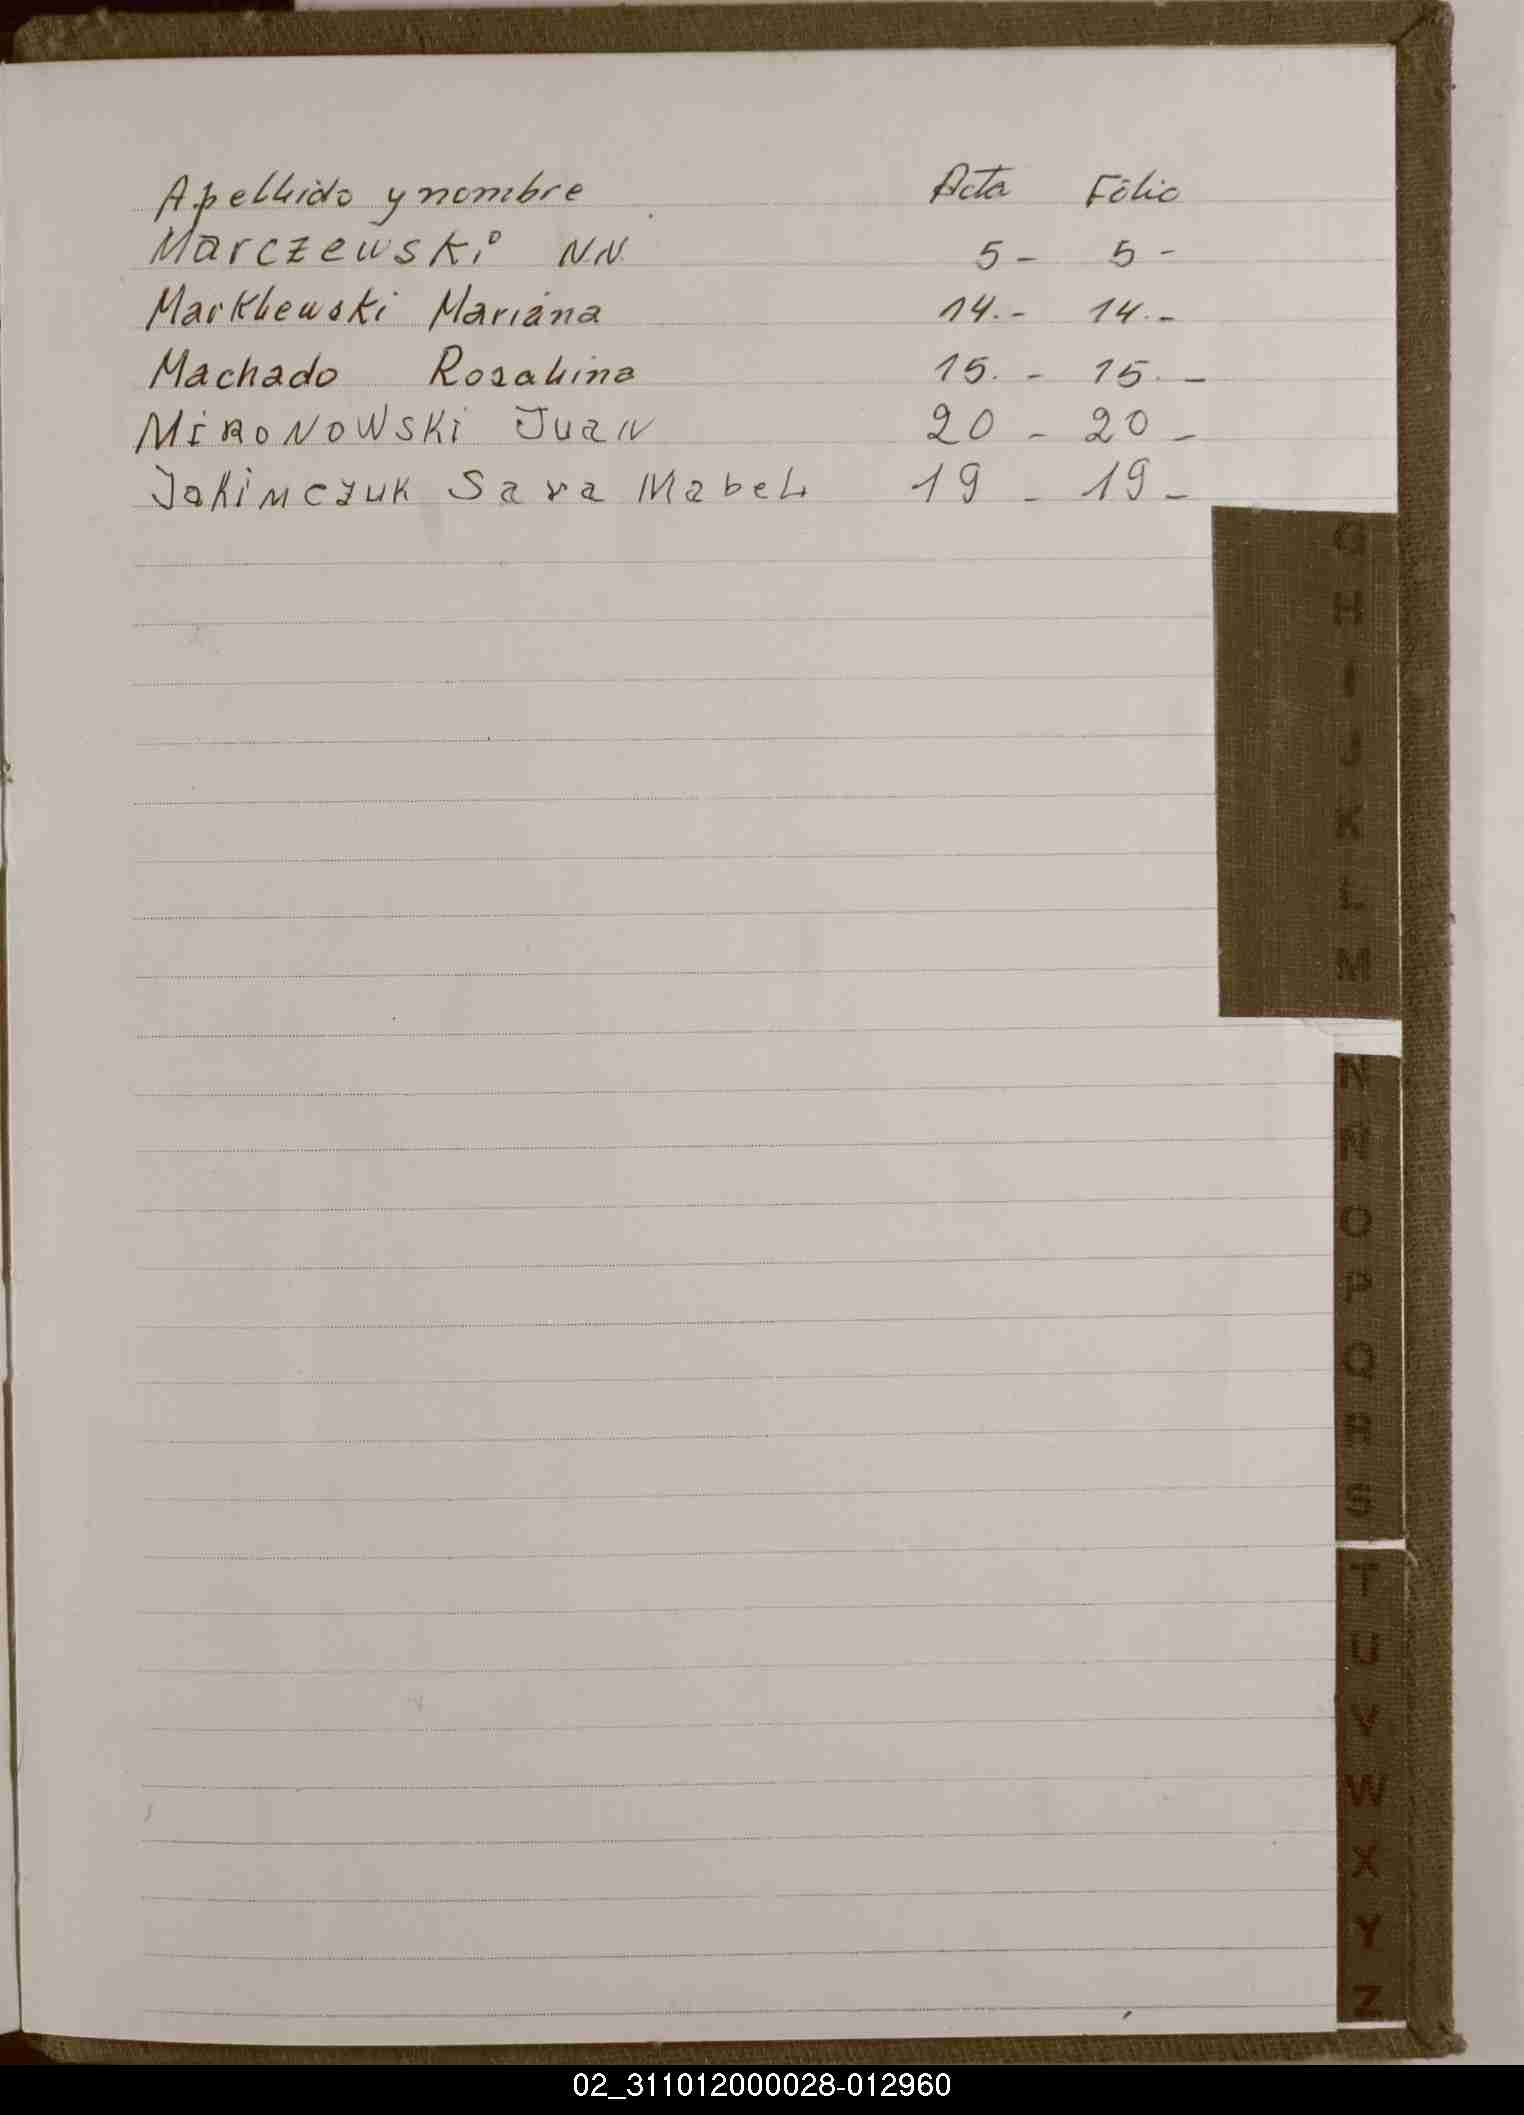 Apellido y nombre Acta Fólio
Marczewski N.N. 5 - 5 -
Marklewski Mariana 14.- 14.-
Machado Rosalina 15.- 15.-
MiRONOWSKi Juan 20 - 20 -
Jakimczuk Sara Mabel 19 - 19 -
G
H
I
J
K
L
M
N
Ñ
O
P
Q
R
S
T
U
V
W
X
Y
Z
02_311012000028-012960